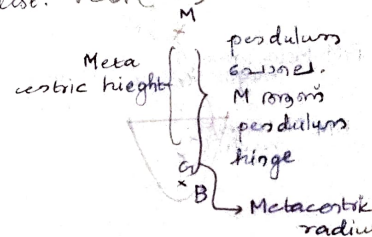 M
Meta
centric hieght
pendulum
പോലെ.
M ആണ്
pendulum
hinge
G
B
Metacentric
radiu